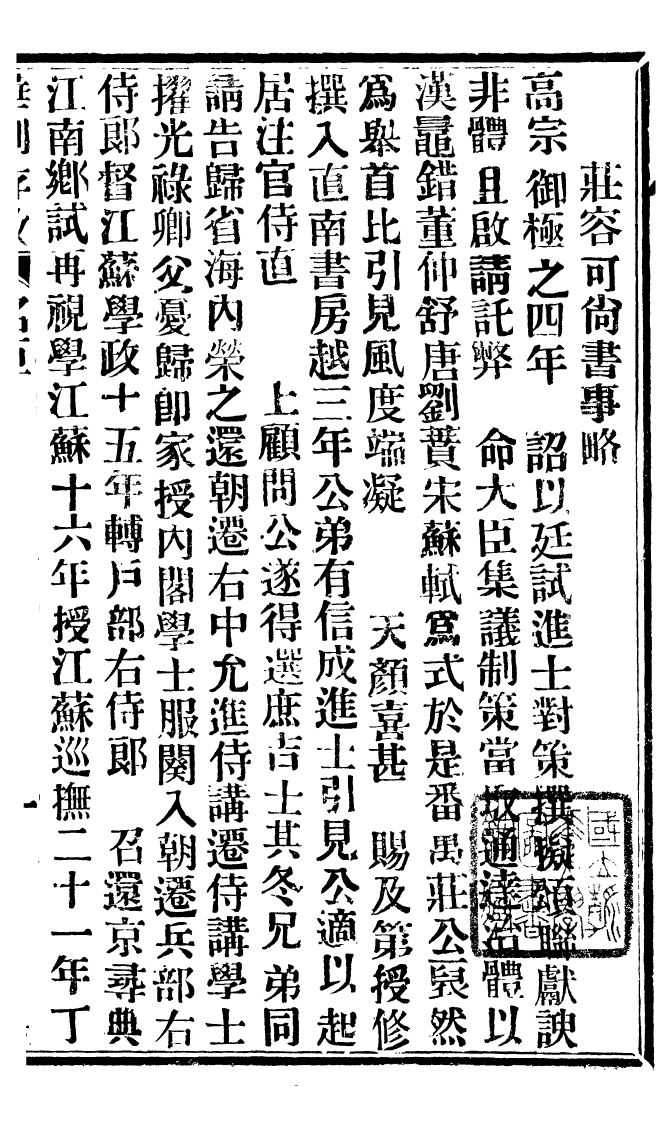 莊容可尙書事略
高宗御極之四年 詔以廷試進士對策撰擬頌聯獻諛
非體且啟請託弊 命大臣集議制策當取通達治體以
漢鼂錯董仲舒唐劉蕡宋蘇軾爲式於是番禺莊公裒然
爲舉首比引見風度端凝 天顏喜甚 賜及第授修
撰入直南書房越三年公弟有信成進士引見公適以起
居注官侍直 上顧問公遂得選庶吉士其冬兄弟同
請告歸省海內榮之還朝遷右中允進侍講遷侍講學士
擢光祿卿父憂歸卽家授內閣學士服闋入朝遷兵部右
侍郎督江蘇學政十五年轉戶部右侍郎 召還京尋典
江南鄉試再視學江蘇十六年授江蘇巡撫二十一年丁